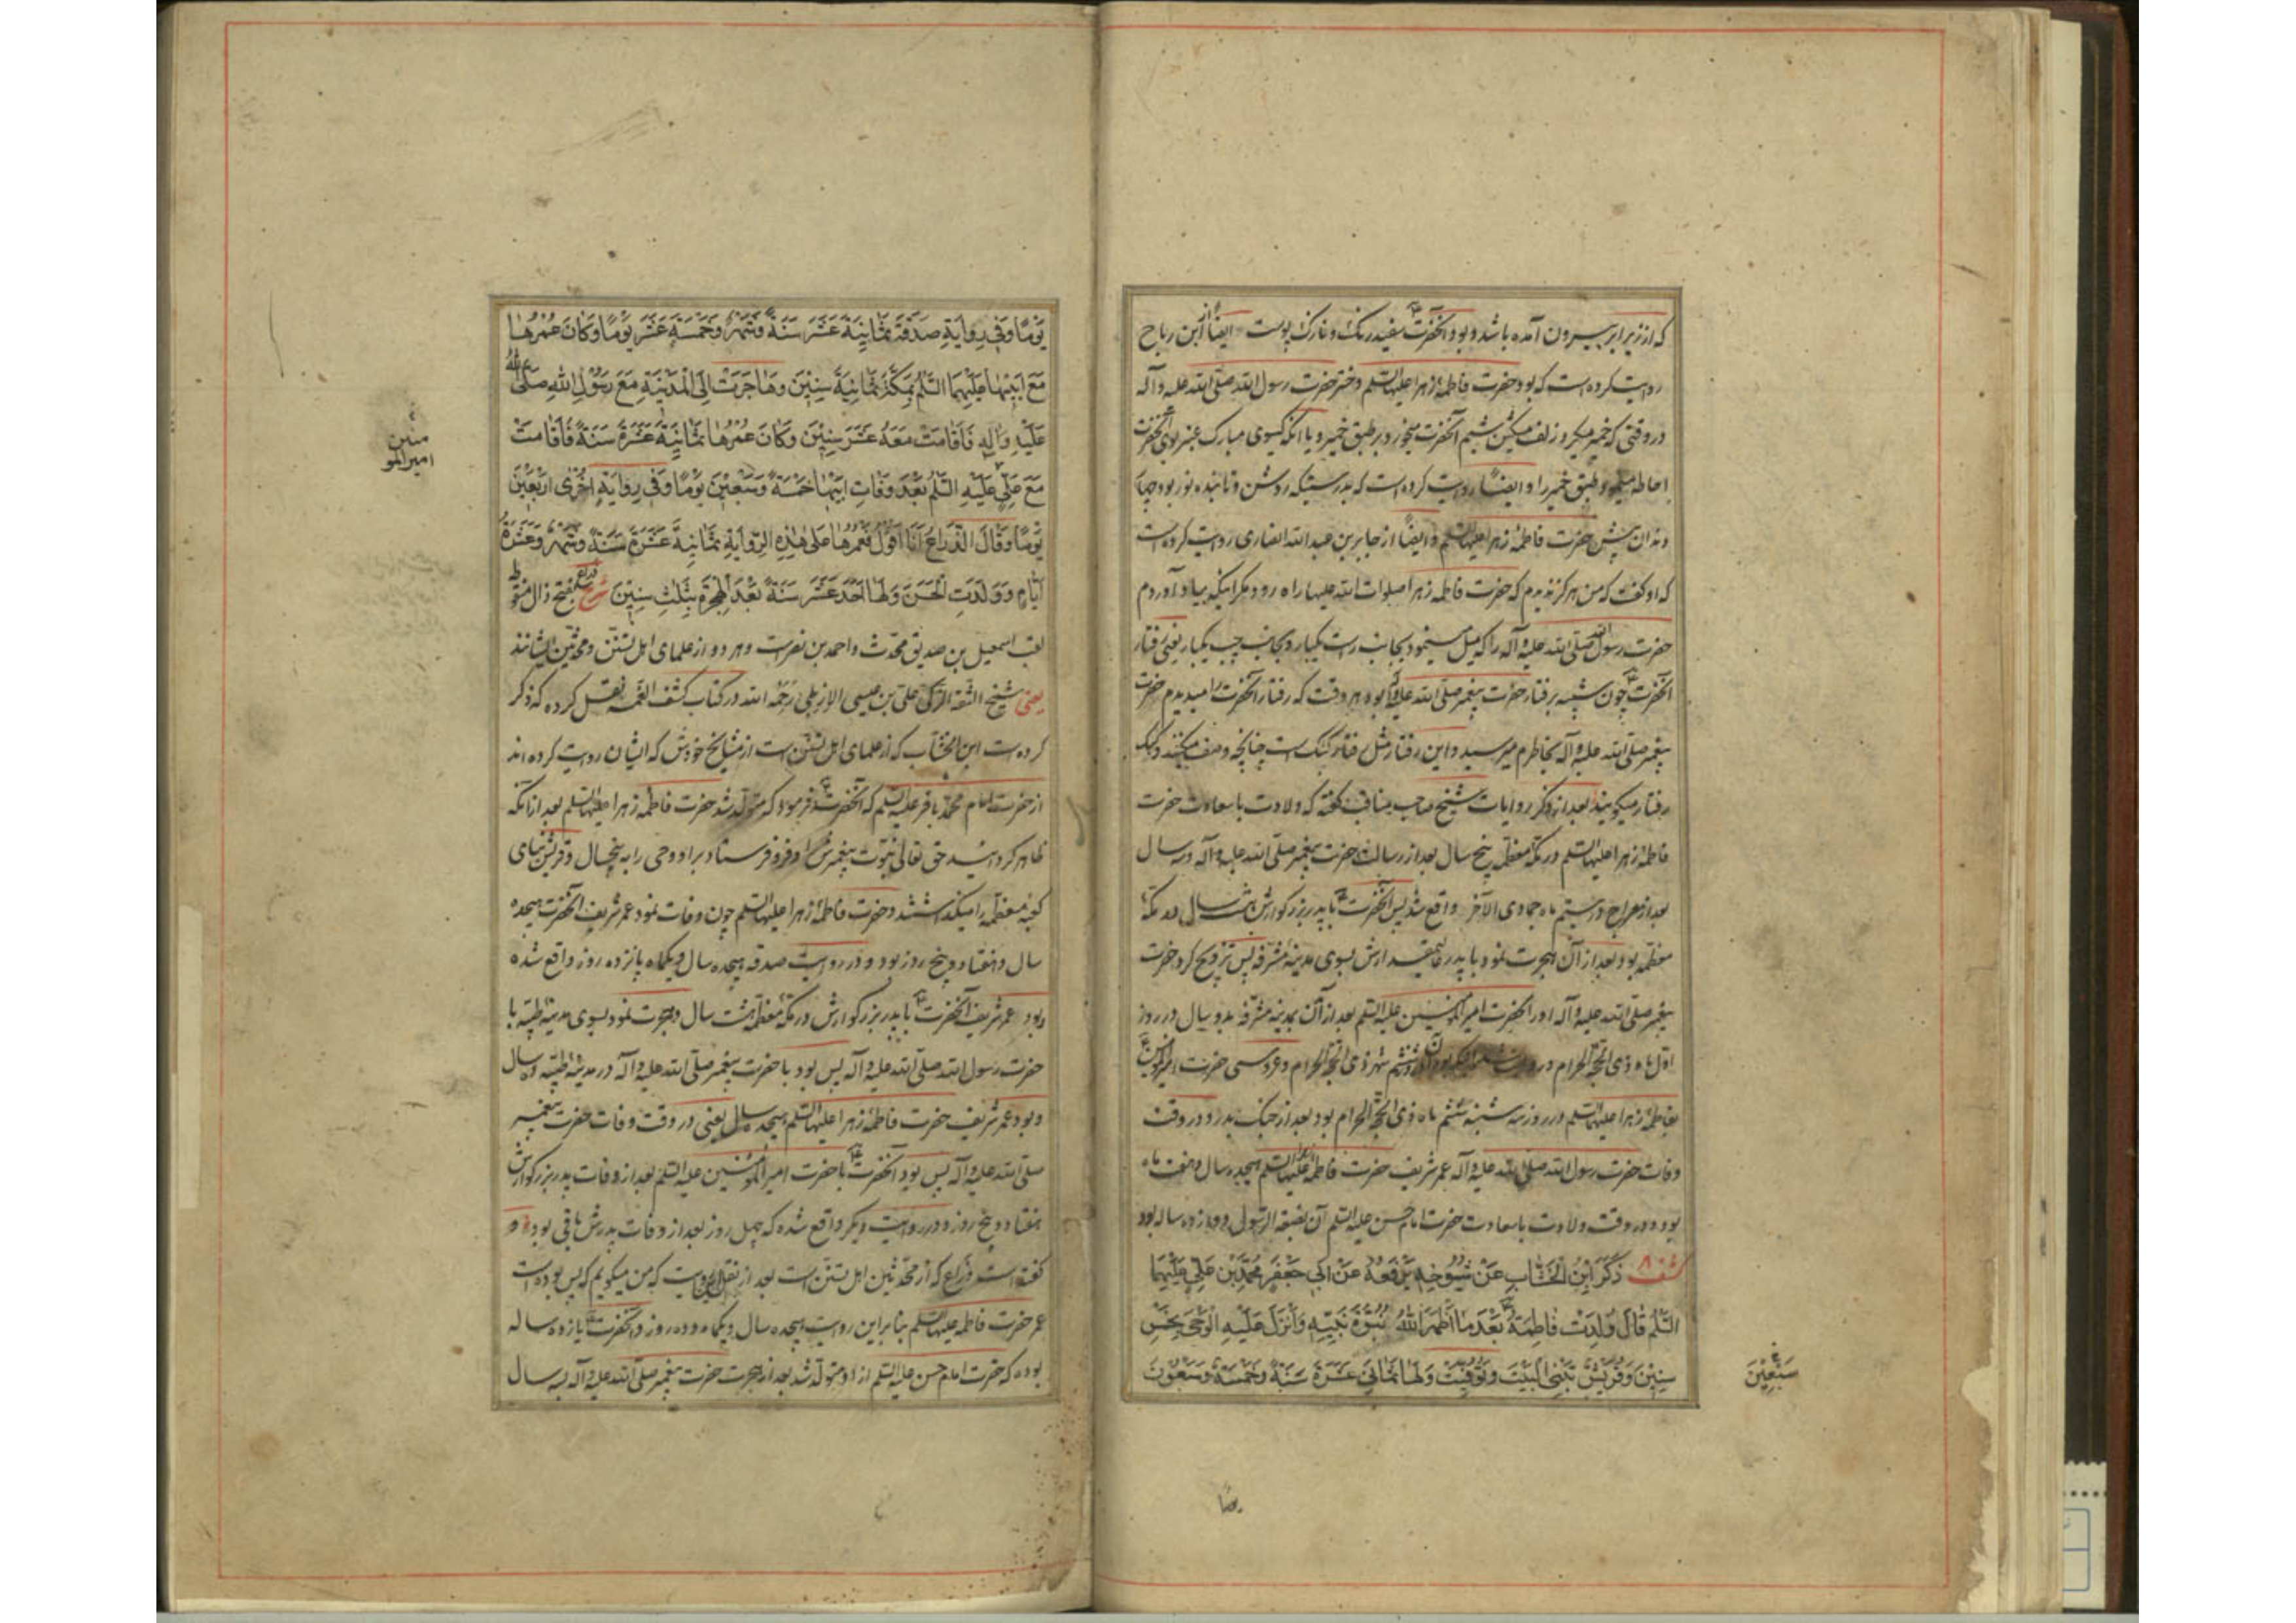 که از زیر ابر بیرون آمده باشد و بود آنحضرت سفید رنگ و نازک پوست ایضاً از ابن رباح
روایت کرده است که بود حضرت فاطمه زهرا علیها السلم دختر حضرت رسول الله صلی الله علیه وآله
در وقتی که خمیر میکرد زلف مشکین شمیم آنحضرت میخورد بر طبق خمیر و یا آنکه گیسوی مبارک عنبر بوی آنحضرت
احاطه مینمود طبق خمیر را و ایضاً روایت کرده است که بدرستیکه روشن و تابنده نور بود
دندان پیش حضرت فاطمه زهرا علیها السلم و ایضاً از جابر بن عبد الله انصاری روایت کرده است
که او گفت که من هرگز ندیدم که حضرت فاطمه زهرا صلوات الله علیها راه رود مگر اینکه بیاد آوردم
حضرت رسول الله صلی الله علیه وآله را که میل مینمود بجانب راست یکبار و بجانب چپ یکبار یعنی رفتار
آنحضرت چون شبیه برفتار حضرت پیغمبر صلی الله علیه وآله بود هر وقت که رفتار آنحضرت را میدیدم حضرت
پیغمبر صلی الله علیه وآله بخاطرم میرسید و این رفتار مثل رفتار کبک است چنانچه وصف میکنند و کبک
رفتار میگویند بعد از ذکر روایات شیخ صاحب مناقب گفته که ولادت با سعادت حضرت
فاطمه زهرا علیها السلم در مکه معظمه پنج سال بعد از رسالت حضرت پیغمبر صلی الله علیه وآله و سه سال
بعد از معراج در بیستم ماه جمادی الآخر واقع شد پس آنحضرت با پدر بزرگوارش هشت سال در مکه
معظمه بود بعد از آن هجرت نمود با پدر عالیمقدارش بسوی مدینه مشرفه پس تزویج کرد حضرت
پیغمبر صلی الله علیه وآله او را بحضرت امیر المؤمنین علیه السلم بعد از آن بمدینه مشرفه بدو سال در روز
اول ماه ذی الحجة الحرام و در روایت دیگر بود آن در ششم شهر ذی الحجة الحرام و عروسی حضرت امیر المؤمنین
بفاطمه زهرا علیها السلم در روز سه شنبه ششم ماه ذی الحجة الحرام بود بعد از جنگ بدر و در وقت
وفات حضرت رسول الله صلی الله علیه وآله عمر شریف حضرت فاطمه علیها السلم هیجده سال و هفت ماه
بود و در وقت ولادت با سعادت حضرت امام حسن علیه السلم آن بضعة الرسول دوازده ساله بود
کشف ۸ ذَكَرَ ابْنُ الْخَشَّابِ عَنْ شُيُوخِهِ يَرْفَعُهُ عَنْ أَبِي جَعْفَرٍ مُحَمَّدِ بْنِ عَلِيٍّ عَلَيْهِمَا
السَّلَمُ قَالَ وُلِدَتْ فَاطِمَةُ بَعْدَ مَا أَظْهَرَ اللهُ نُبُوَّةَ نَبِيِّهِ وَأَنْزَلَ عَلَيْهِ الْوَحْيَ بِخَمْسِ
سِنِينَ وَقُرَيْشٌ تَبْنِي الْبَيْتَ وَتُوُفِّيَتْ وَلَهَا ثَمَانِيَ عَشْرَةَ سَنَةً وَخَمْسَةٌ وَسَبْعُونَ
سَبْعِينَ
يوما
يَوْمًا وَفِي رِوَايَةِ صَدَقَةَ ثَمَانِيَةَ عَشَرَ سَنَةً وَشَهْرٌ وَخَمْسَةَ عَشَرَ يَوْمًا وَكَانَ عُمْرُهَا
مَعَ أَبِيهَا عَلَيْهِمَا السَّلَمُ بِمَكَّةَ ثَمَانِيَةَ سِنِينَ وَهَاجَرَتْ إِلَى الْمَدِينَةِ مَعَ رَسُولِ اللهِ صَلَّى اللهُ
عَلَيْهِ وَآلِهِ فَأَقَامَتْ مَعَهُ عَشَرَ سِنِينَ وَكَانَ عُمْرُهَا ثَمَانِيَةَ عَشْرَةَ سَنَةً فَأَقَامَتْ
مَعَ عَلِيٍّ عَلَيْهِ السَّلَمُ بَعْدَ وَفَاتِ أَبِيهَا خَمْسَةً وَسَبْعِينَ يَوْمًا وَفِي رِوَايَةٍ أُخْرَى أَرْبَعِينَ
يَوْمًا وَقَالَ الذَّرَاعُ أَنَا أَقُولُ فَعُمْرُهَا عَلَى هَذِهِ الرِّوَايَةِ ثَمَانِيَةَ عَشْرَةَ سَنَةً وَشَهْرٌ وَعَشَرَةُ
أَيَّامٍ وَوَلَدَتِ الْحَسَنَ وَلَهَا أَحَدَ عَشَرَ سَنَةً بَعْدَ الْهِجْرَةِ بِثَلَثِ سِنِينَ شرح ذراع بفتح ذال منقوطه
لقب اسمعیل بن صدیق محدث و احمد بن نصر است و هر دو از علمای اهل تسنن و محدثین ایشانند
یعنی شیخ الثقة الزکی علی بن عیسی الاربلی رحمه الله در کتاب کشف الغمه نقل کرده که ذکر
کرده است ابن الخشاب که از علمای اهل تسنن است از مشایخ خودش که ایشان روایت کرده اند
از حضرت امام محمد باقر علیه السلم که آنحضرت فرمود که متولد شد حضرت فاطمه زهرا علیها السلم بعد از آنکه
ظاهر گردانید حق تعالی نبوت پیغمبرش را و فرو فرستاد بر او وحی را به پنجسال و قریش بنای
کعبه معظمه را میگذاشتند و حضرت فاطمه زهرا علیها السلم چون وفات نمود عمر شریف آنحضرت هیجده
سال و هفتاد و پنج روز بود و در روایت صدقه هیجده سال و یکماه پانزده روز واقع شده
و بود عمر شریف آنحضرت با پدر بزرگوارش در مکه معظمه هشت سال و هجرت نمود بسوی مدینه طیبه با
حضرت رسول الله صلی الله علیه وآله پس بود با حضرت پیغمبر صلی الله علیه وآله در مدینه طیبه ده سال
و بود عمر شریف حضرت فاطمه زهرا علیها السلم هیجده سال یعنی در وقت وفات حضرت پیغمبر
صلی الله علیه وآله پس بود آنحضرت با حضرت امیر المؤمنین علیه السلم بعد از وفات پدر بزرگوارش
هفتاد و پنج روز و در روایت دیگر واقع شده که چهل روز بعد از وفات پدرش باقی بوده و
گفته است ذراع که از محدثین اهل تسنن است بعد از نقل این روایت که من میگویم که پس بوده است
عمر حضرت فاطمه علیها السلم بنا بر این روایت هیجده سال و یکماه و ده روز و آنحضرت یازده ساله
بوده که حضرت امام حسن علیه السلم از او متولد شد بعد از هجرت حضرت پیغمبر صلی الله علیه وآله بسه سال
منین
امیر المو